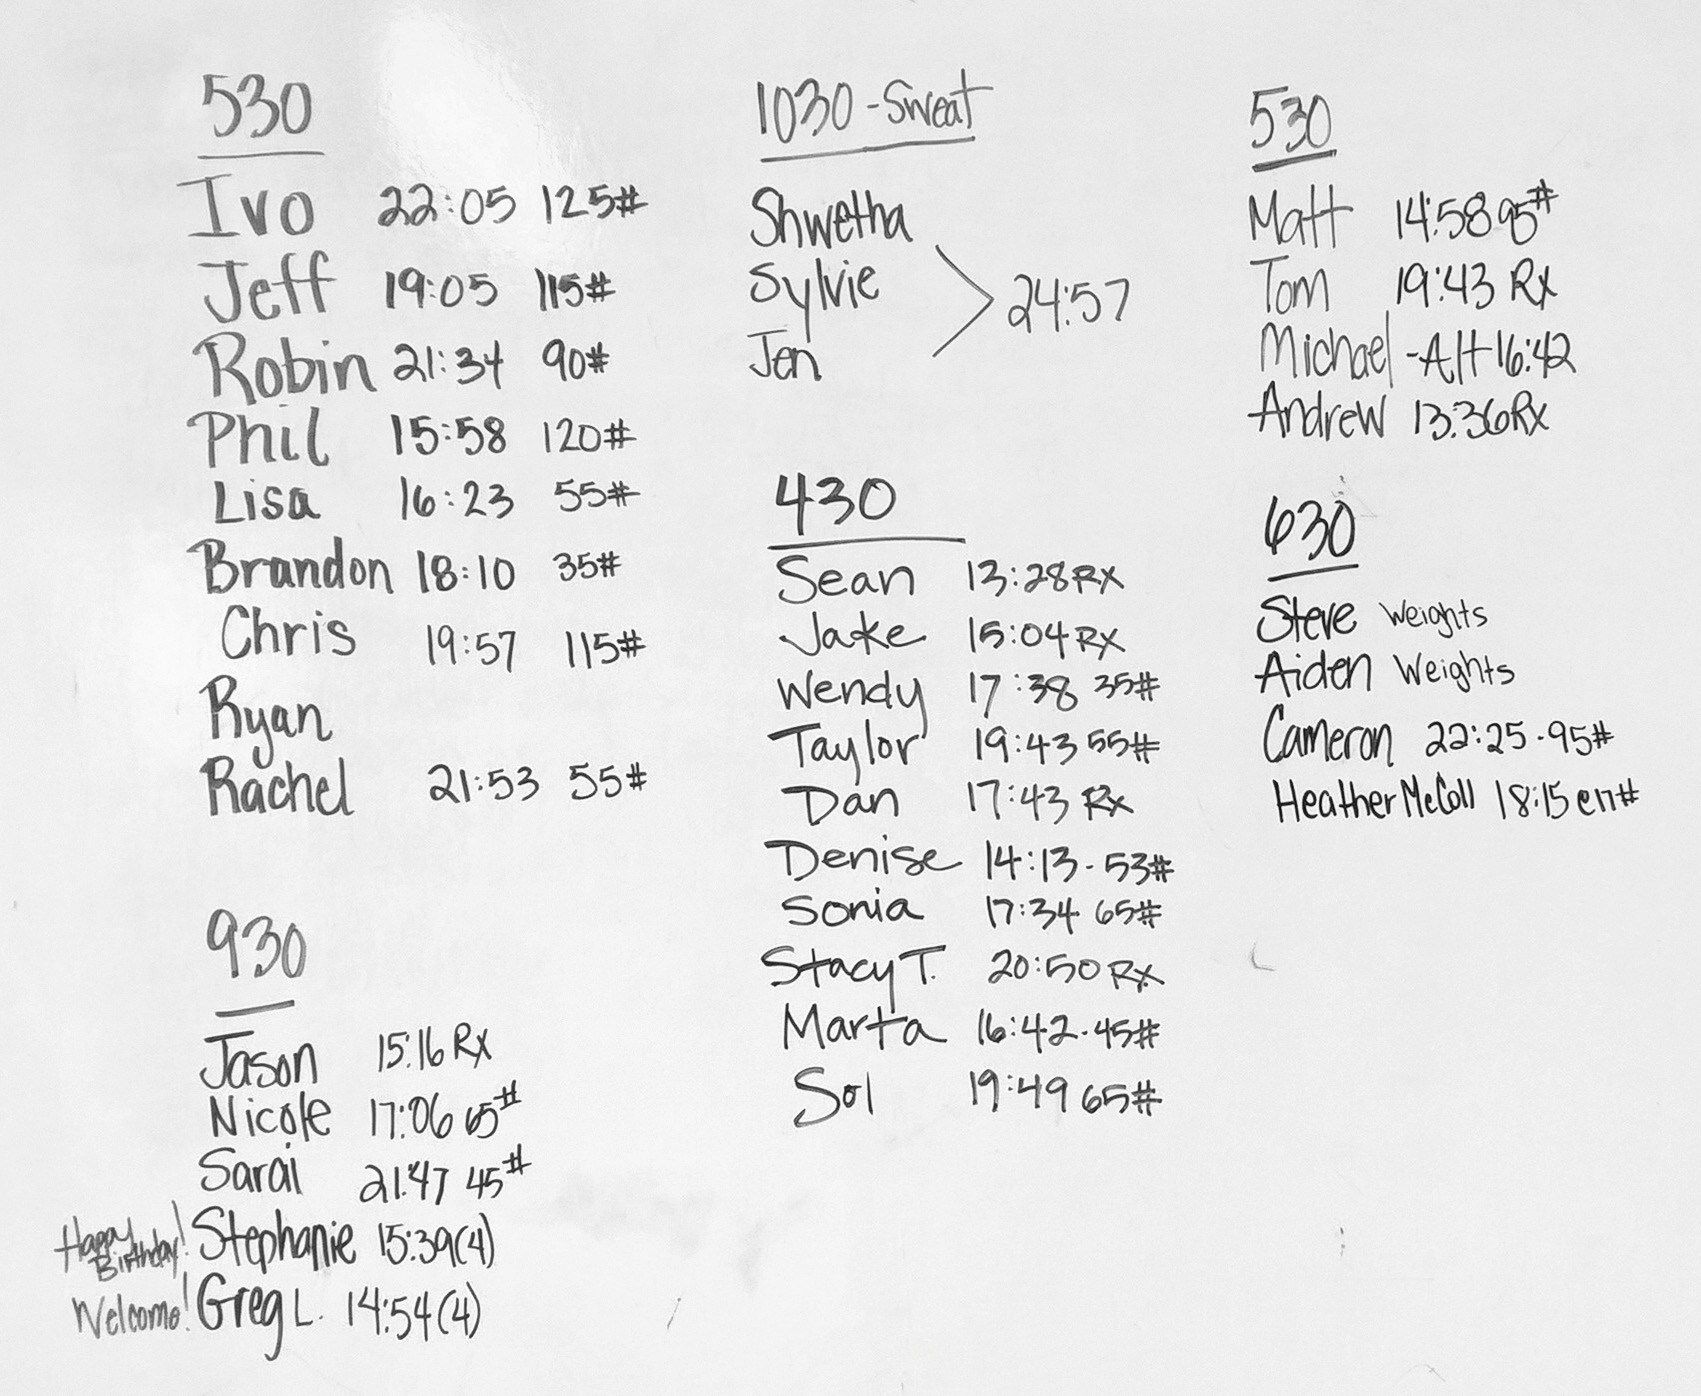 530
Ivo 22:05 125#
Jeff 19:05 115#
Robin 21:34 90#
Phil 15:58 120#
Lisa 16:23 55#
Brandon 18:10 35#
Chris 19:57 115#
Ryan
Rachel 21:53 55#
930
Jason 15:16 Rx
Nicole 17:06 65#
Sarai 21:47 45#
Happy Birthday! Stephanie 15:39(4)
Welcome! Greg L. 14:54(4)
1030 - Sweat
Shwetha
Sylvie
Jen
24:57
430
Sean 13:28 RX
Jake 15:04 RX
Wendy 17:38 35#
Taylor 19:43 55#
Dan 17:43 Rx
Denise 14:13 - 53#
Sonia 17:34 65#
Stacy T. 20:50 Rx
Marta 16:42 - 45#
Sol 19:49 65#
530
Matt 14:58 95#
Tom 19:43 Rx
Michael - Alt 16:42
Andrew 13:36 Rx
630
Steve Weights
Aiden Weights
Cameron 22:25 - 95#
Heather McColl 18:15